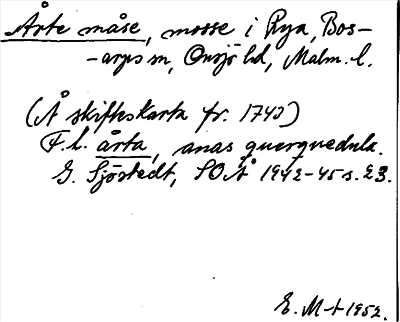 Årte måse, mosse i Rya, Bos-
-arps sn, Onsjö hd, Malm. l.
(Å skifteskarta fr. 1740)
F.l. årta, anas querquedula.
G. Sjöstedt, SOÅ 1942-45 s. 23.
E. M-t 1952.